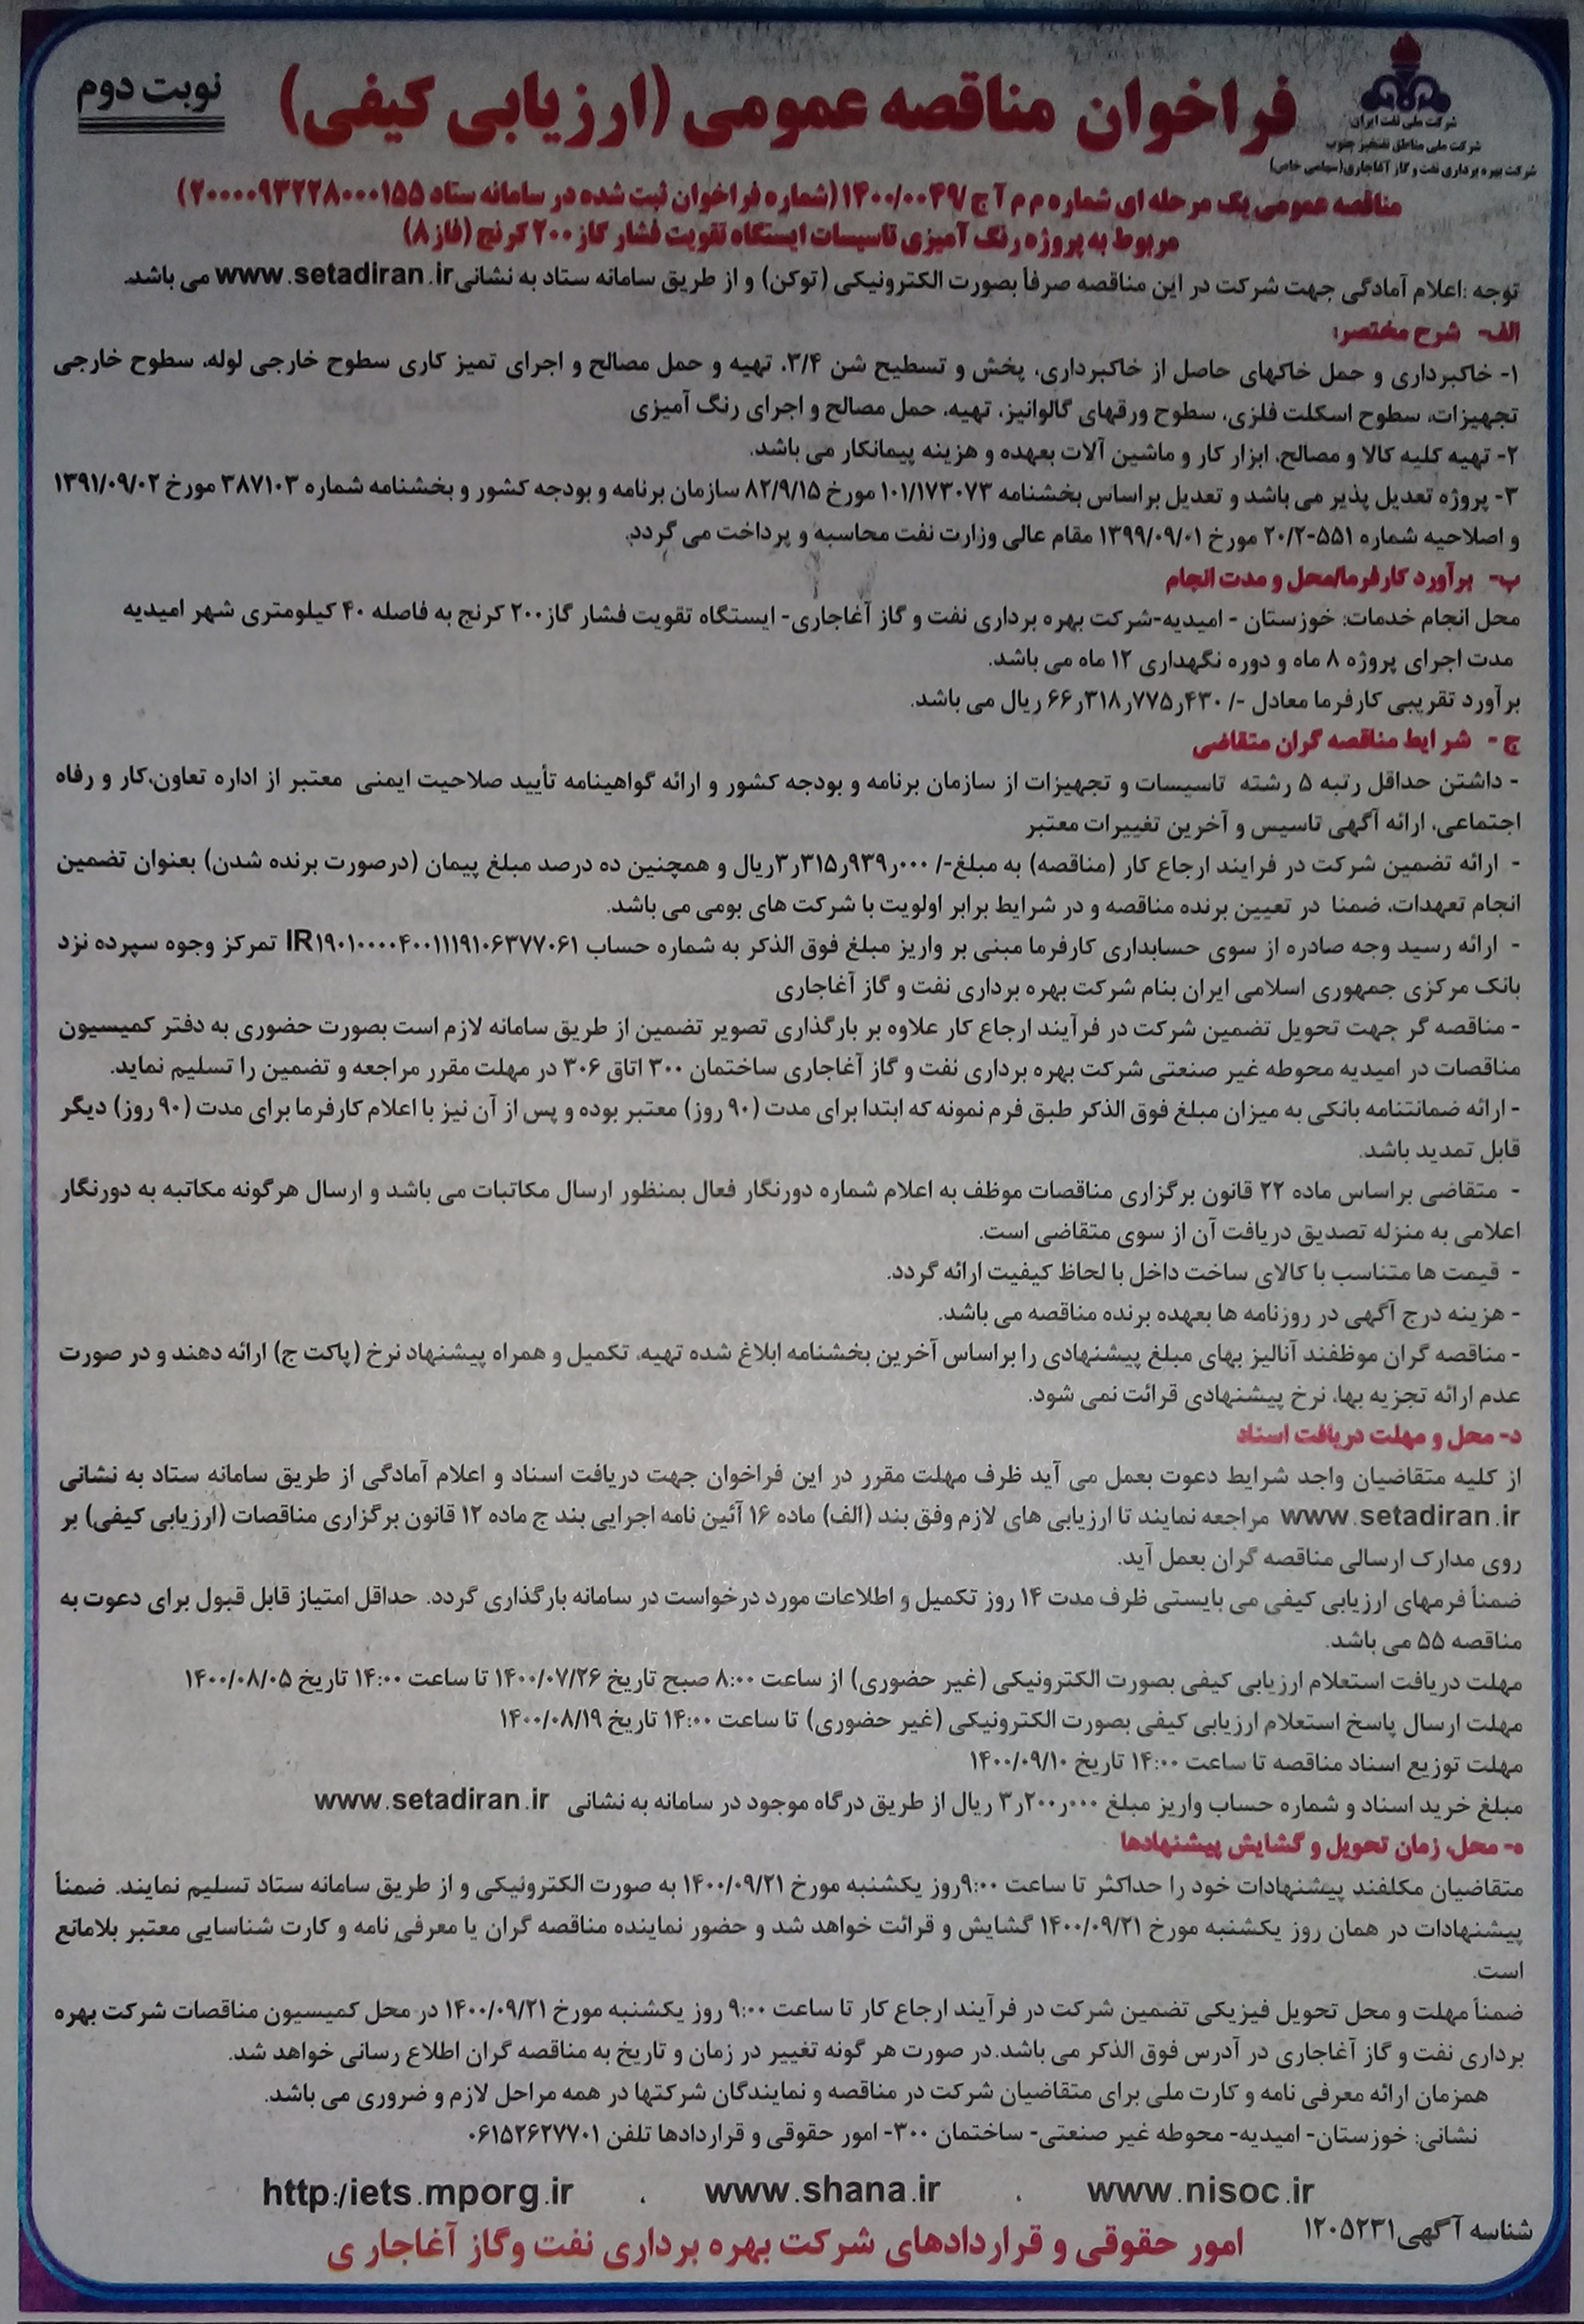 شرکت ملی نفت ایران
شرکت ملی مناطق نفتخیز جنوب
شرکت بهره برداری نفت و گاز آغاجاری(سهامی خاص)
فراخوان مناقصه عمومی (ارزیابی کیفی)
نوبت دوم
مناقصه عمومی یک مرحله ای شماره م م آ ج /۱۴۰۰/۰۰۴۹ (شماره فراخوان ثبت شده در سامانه ستاد ۲۰۰۰۰۹۳۲۲۸۰۰۰۱۵۵)
مربوط به پروژه رنگ آمیزی تاسیسات ایستگاه تقویت فشار گاز ۲۰۰ کرنج (فاز ۸)
توجه :اعلام آمادگی جهت شرکت در این مناقصه صرفاً بصورت الکترونیکی (توکن) و از طریق سامانه ستاد به نشانی www.setadiran.ir می باشد.
الف- شرح مختصر:
۱- خاکبرداری و حمل خاکهای حاصل از خاکبرداری، پخش و تسطیح شن ۳/۴، تهیه و حمل مصالح و اجرای تمیز کاری سطوح خارجی لوله، سطوح خارجی
تجهیزات، سطوح اسکلت فلزی، سطوح ورقهای گالوانیز، تهیه، حمل مصالح و اجرای رنگ آمیزی
۲- تهیه کلیه کالا و مصالح، ابزار کار و ماشین آلات بعهده و هزینه پیمانکار می باشد.
۳- پروژه تعدیل پذیر می باشد و تعدیل براساس بخشنامه ۱۰۱/۱۷۳۰۷۳ مورخ ۸۲/۹/۱۵ سازمان برنامه و بودجه کشور و بخشنامه شماره ۳۸۷۱۰۳ مورخ ۱۳۹۱/۰۹/۰۲
و اصلاحیه شماره ۵۵۱-۲۰/۲ مورخ ۱۳۹۹/۰۹/۰۱ مقام عالی وزارت نفت محاسبه و پرداخت می گردد.
ب- برآورد کارفرما/محل و مدت انجام
محل انجام خدمات: خوزستان - امیدیه-شرکت بهره برداری نفت و گاز آغاجاری- ایستگاه تقویت فشار گاز ۲۰۰ کرنج به فاصله ۴۰ کیلومتری شهر امیدیه
مدت اجرای پروژه ۸ ماه و دوره نگهداری ۱۲ ماه می باشد.
برآورد تقریبی کارفرما معادل -/ ۶۶٫۳۱۸٫۷۷۵٫۴۳۰ ریال می باشد.
ج - شرایط مناقصه گران متقاضی
- داشتن حداقل رتبه ۵ رشته تاسیسات و تجهیزات از سازمان برنامه و بودجه کشور و ارائه گواهینامه تأیید صلاحیت ایمنی معتبر از اداره تعاون،کار و رفاه
اجتماعی، ارائه آگهی تاسیس و آخرین تغییرات معتبر
- ارائه تضمین شرکت در فرایند ارجاع کار (مناقصه) به مبلغ-/ ۳٫۳۱۵٫۹۳۹٫۰۰۰ریال و همچنین ده درصد مبلغ پیمان (درصورت برنده شدن) بعنوان تضمین
انجام تعهدات، ضمنا در تعیین برنده مناقصه و در شرایط برابر اولویت با شرکت های بومی می باشد.
- ارائه رسید وجه صادره از سوی حسابداری کارفرما مبنی بر واریز مبلغ فوق الذکر به شماره حساب IR۱۹۰۱۰۰۰۰۴۰۰۱۱۱۹۱۰۶۳۷۷۰۶۱ تمرکز وجوه سپرده نزد
بانک مرکزی جمهوری اسلامی ایران بنام شرکت بهره برداری نفت و گاز آغاجاری
- مناقصه گر جهت تحویل تضمین شرکت در فرآیند ارجاع کار علاوه بر بارگذاری تصویر تضمین از طریق سامانه لازم است بصورت حضوری به دفتر کمیسیون
مناقصات در امیدیه محوطه غیر صنعتی شرکت بهره برداری نفت و گاز آغاجاری ساختمان ۳۰۰ اتاق ۳۰۶ در مهلت مقرر مراجعه و تضمین را تسلیم نماید.
- ارائه ضمانتنامه بانکی به میزان مبلغ فوق الذکر طبق فرم نمونه که ابتدا برای مدت (۹۰ روز) معتبر بوده و پس از آن نیز با اعلام کارفرما برای مدت (۹۰ روز) دیگر
قابل تمدید باشد.
- متقاضی براساس ماده ۲۲ قانون برگزاری مناقصات موظف به اعلام شماره دورنگار فعال بمنظور ارسال مکاتبات می باشد و ارسال هرگونه مکاتبه به دورنگار
اعلامی به منزله تصدیق دریافت آن از سوی متقاضی است.
- قیمت ها متناسب با کالای ساخت داخل با لحاظ کیفیت ارائه گردد.
- هزینه درج آگهی در روزنامه ها بعهده برنده مناقصه می باشد.
- مناقصه گران موظفند آنالیز بهای مبلغ پیشنهادی را براساس آخرین بخشنامه ابلاغ شده تهیه، تکمیل و همراه پیشنهاد نرخ (پاکت ج) ارائه دهند و در صورت
عدم ارائه تجزیه بها، نرخ پیشنهادی قرائت نمی شود.
د- محل و مهلت دریافت اسناد
از کلیه متقاضیان واجد شرایط دعوت بعمل می آید ظرف مهلت مقرر در این فراخوان جهت دریافت اسناد و اعلام آمادگی از طریق سامانه ستاد به نشانی
www.setadiran.ir مراجعه نمایند تا ارزیابی های لازم وفق بند (الف) ماده ۱۶ آئین نامه اجرایی بند ج ماده ۱۲ قانون برگزاری مناقصات (ارزیابی کیفی) بر
روی مدارک ارسالی مناقصه گران بعمل آید.
ضمناً فرمهای ارزیابی کیفی می بایستی ظرف مدت ۱۴ روز تکمیل و اطلاعات مورد درخواست در سامانه بارگذاری گردد. حداقل امتیاز قابل قبول برای دعوت به
مناقصه ۵۵ می باشد.
مهلت دریافت استعلام ارزیابی کیفی بصورت الکترونیکی (غیر حضوری) از ساعت ۸:۰۰ صبح تاریخ ۱۴۰۰/۰۷/۲۶ تا ساعت ۱۴:۰۰ تاریخ ۱۴۰۰/۰۸/۰۵
مهلت ارسال پاسخ استعلام ارزیابی کیفی بصورت الکترونیکی (غیر حضوری) تا ساعت ۱۴:۰۰ تاریخ ۱۴۰۰/۰۸/۱۹
مهلت توزیع اسناد مناقصه تا ساعت ۱۴:۰۰ تاریخ ۱۴۰۰/۰۹/۱۰
مبلغ خرید اسناد و شماره حساب واریز مبلغ ۳٫۲۰۰٫۰۰۰ ریال از طریق درگاه موجود در سامانه به نشانی www.setadiran.ir
ه- محل، زمان تحویل و گشایش پیشنهادها
متقاضیان مکلفند پیشنهادات خود را حداکثر تا ساعت ۹:۰۰روز یکشنبه مورخ ۱۴۰۰/۰۹/۲۱ به صورت الکترونیکی و از طریق سامانه ستاد تسلیم نمایند. ضمناً
پیشنهادات در همان روز یکشنبه مورخ ۱۴۰۰/۰۹/۲۱ گشایش و قرائت خواهد شد و حضور نماینده مناقصه گران یا معرفی نامه و کارت شناسایی معتبر بلامانع
است.
ضمناً مهلت و محل تحویل فیزیکی تضمین شرکت در فرآیند ارجاع کار تا ساعت ۹:۰۰ روز یکشنبه مورخ ۱۴۰۰/۰۹/۲۱ در محل کمیسیون مناقصات شرکت بهره
برداری نفت و گاز آغاجاری در آدرس فوق الذکر می باشد.در صورت هر گونه تغییر در زمان و تاریخ به مناقصه گران اطلاع رسانی خواهد شد.
همزمان ارائه معرفی نامه و کارت ملی برای متقاضیان شرکت در مناقصه و نمایندگان شرکتها در همه مراحل لازم و ضروری می باشد.
نشانی: خوزستان- امیدیه- محوطه غیر صنعتی- ساختمان ۳۰۰- امور حقوقی و قراردادها تلفن ۰۶۱۵۲۶۲۷۷۰۱
www.nisoc.ir . www.shana.ir . http:/iets.mporg.ir
شناسه آگهی۱۲۰۵۲۳۱
امور حقوقی و قراردادهای شرکت بهره برداری نفت وگاز آغاجار ی